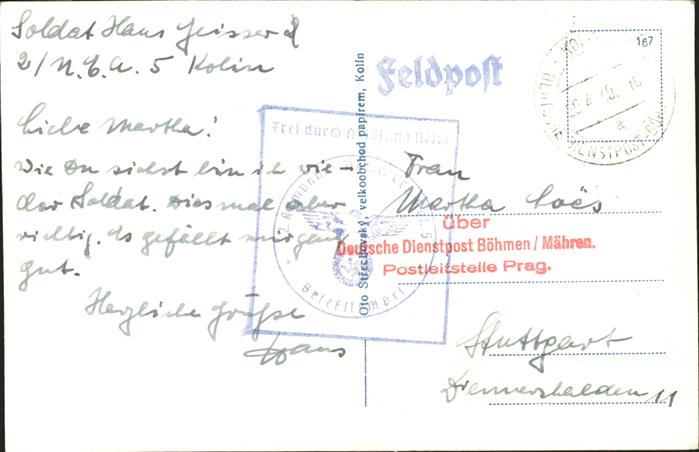 Soldat Hans Geisser
2/N.E.A. 5 Kolin
Liebe Martha!
Wie Du siehst bin ich wie-
der Soldat. Diesmal aber
richtig. Es gefällt mir ganz
gut.
Herzliche Grüße
Hans
Oto Střechovský, velkoobchod papírem, Kolín
Feldpost
Frei durch Ablösung Reich
2. Kompanie
Briefstempel
167
a
Frau
Martha
über
Deutsche Dienstpost Böhmen / Mähren.
Postleitstelle Prag.
Stuttgart
Diemershalden 11